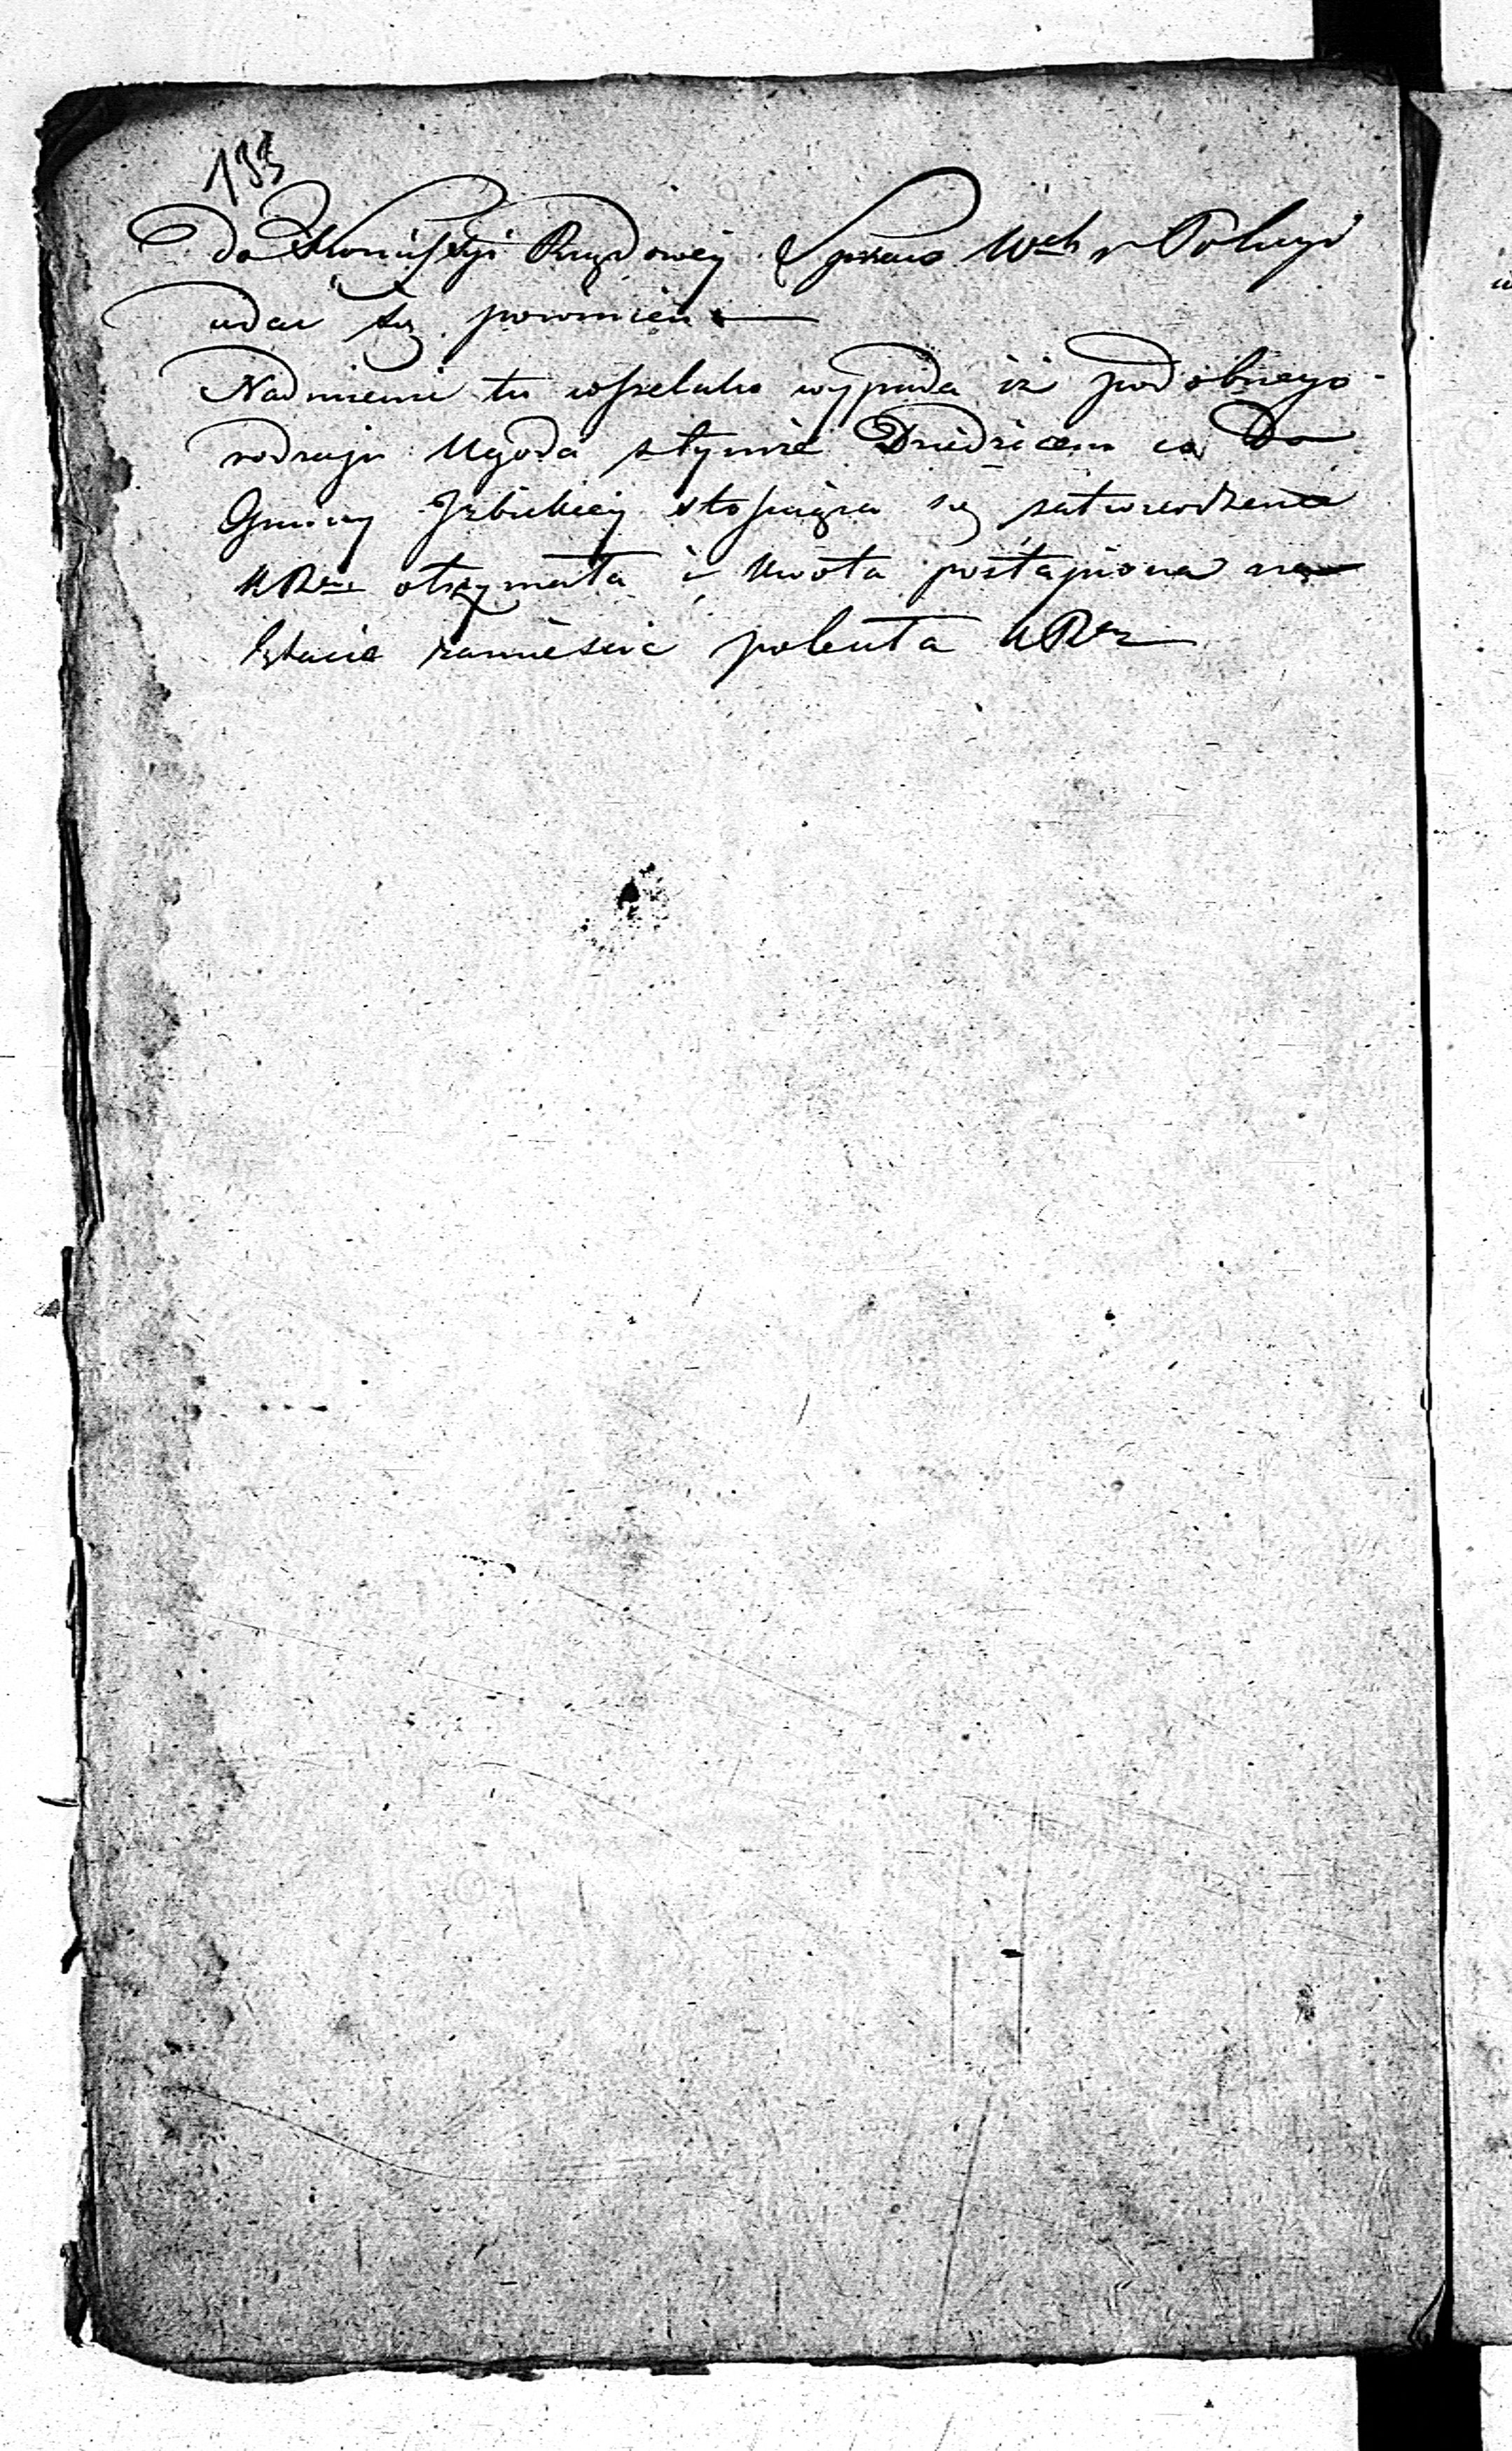 133
do Kommissyi Rządowéy Spraw Wch i Policyi
udać się powinien
Nadmienić tu wszelako wypada iż podobnego
rodzaju Ugoda z tymże Dziedzicem co do
Gminy Izbickiey stosująca się zatwierdzenie
KRz otrzymała i kwota postąpiona na
Etacie zamieścić poleciła KRz